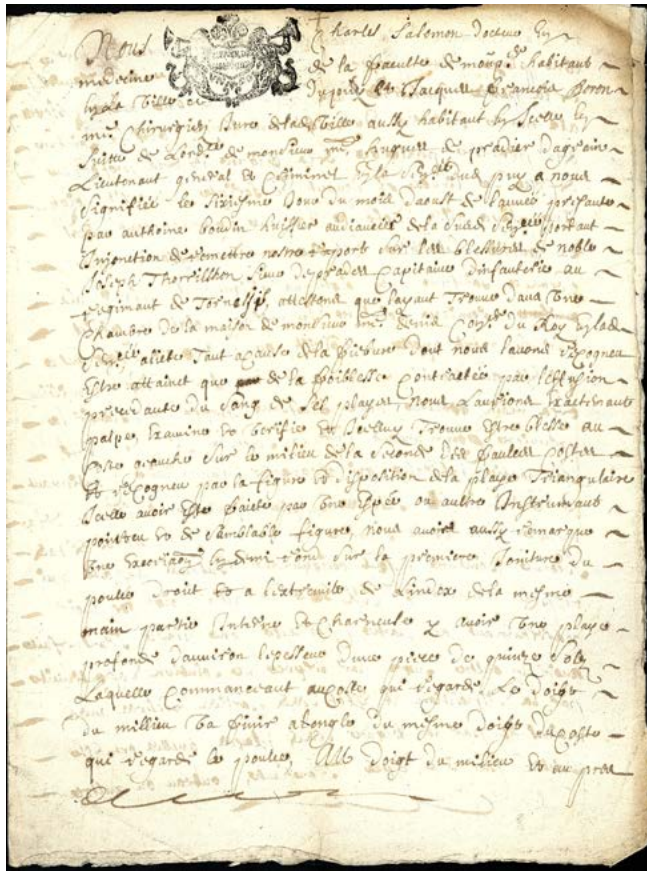 Nous Charles Salomon docteur En
medecine de la faculte de monp.er habitant
En la Ville et Jacques François Boron
m.e Chirurgien Jure de lad Ville aussy habitant En Icelle En
suitte de Lord.ce de monsieur m.e hugues de pradier dagrain
Lieutenant general et Criminel En la Sen.ée du puy a nous
signifiée le sixiesme Jour du mois daoust de lannée presante
par anthoine boudin huissier audiancier de la susd Sen.ée portant
Injonction de remettre nostre raport sur les blessures de noble
Joseph Thorrilhon sieur de prades Capitaine dinfanterie au
regimant de attestons que layant Trouvé dans une
Chambre de la maison de monsieur m.e denis Con.er du Roy En lad
Sen.ée alité Tant a cause de la fiebvre dont nous lavons recogneu
Estre attainct que de la foiblesse Contractée par leffusion
precedante du sang de ses playes, Nous Laurions Exactemant
palpe, Examine et verifie et Icelluy Trouve Estre blesse au
Coste gauche sur le milieu de la seconde des faulces Costes
Et recogneu par la figure et disposition de la playe Triangulaire
Icelle avoir Esté faicte par une Espée ou autre Instrumant
pointeu et de samblable figure, nous avons aussy remarque
une Excoriaon En demi rond sur la premiere Jointure du
poulce droit et a lextremite de Lindex de la mesme
main partie Interne et Charneuse y avoir une playe
profonde danviron lepesseur dune piece de quinze solz
Laquelle Commanceant au coste qui regarde Le doigt
du millieu va finir a longle du mesme doigt du coste
qui regarde le poulce, Au doigt du milieu et au pres